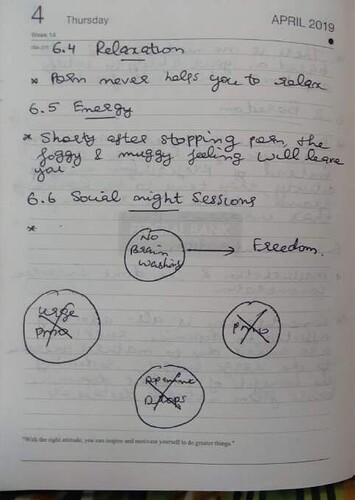 4 Thursday APRIL 2019
Week 14
6.4 Relaxation
* Porn never helps you to relax
6.5 Energy
* Shorty after stopping porn, the
foggy & muggy feeling will leave
you
6.6 Social night Sessions
*
No
Brain
Washing
Freedom.
Urge
Dopamine
Drops
"With the right attitude, you can inspire and motivate yourself to do greater things."